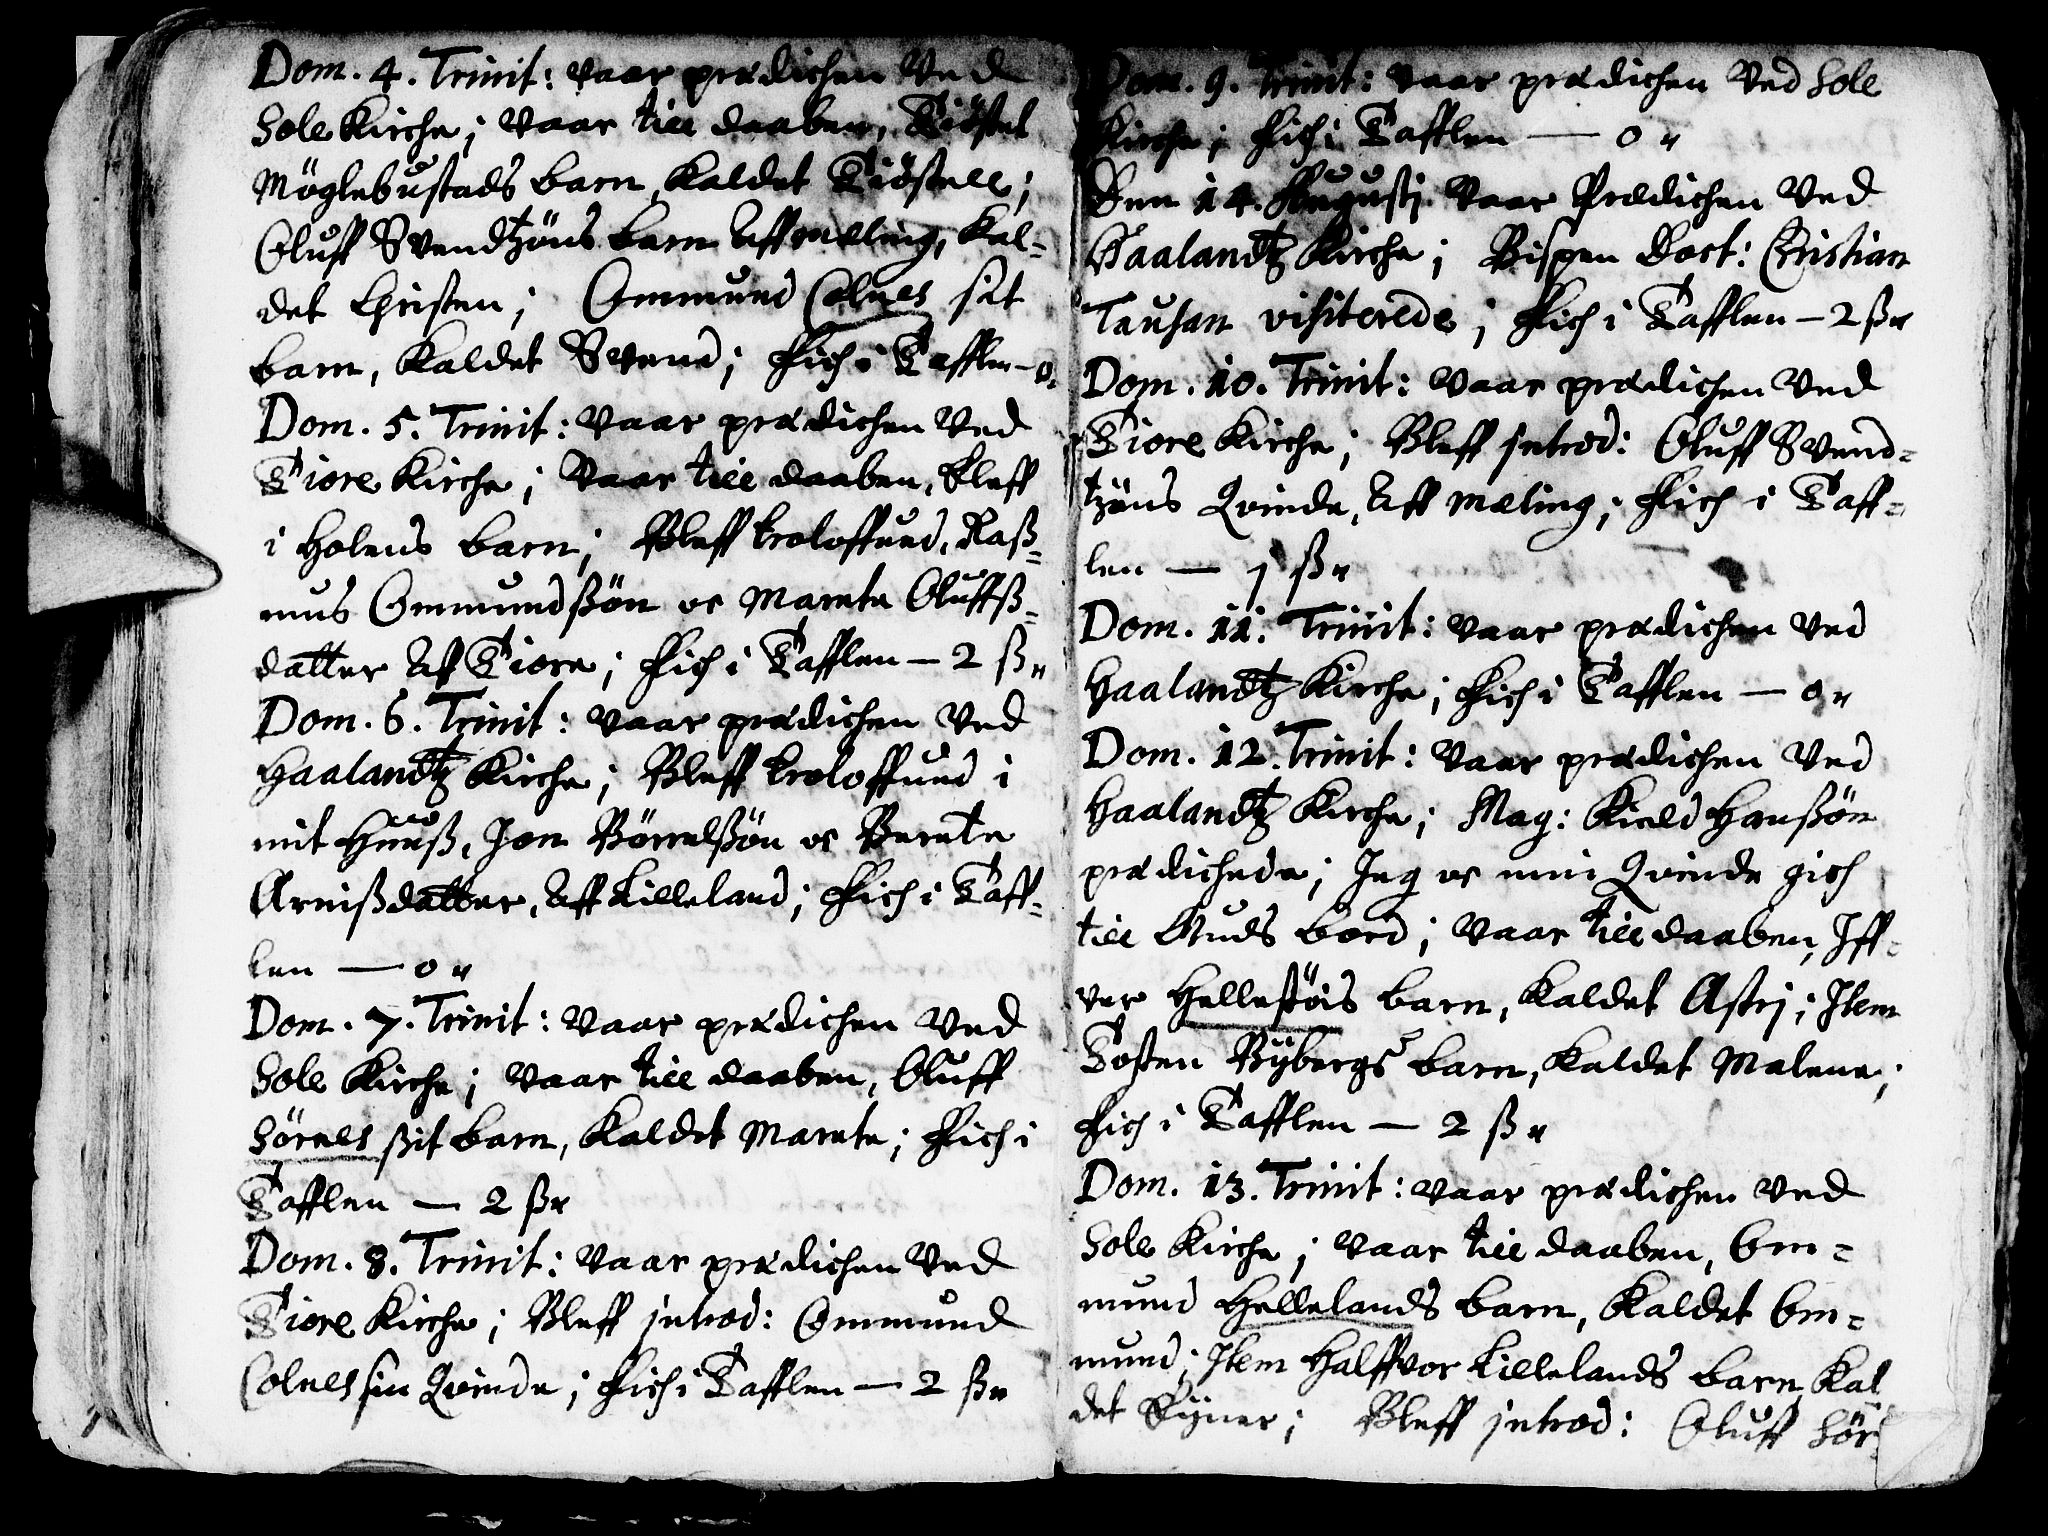 Dom. 4. Trinit: vaar prædichen ved
Sole Kirche; vaar till daaben, Tiöstel
Möglebustads barn, kaldet Tiöstell;
Oluff Svendtzöns barn aff Mæling, kal-
det Christen; Ommund Colnes sit
barn, kaldet Svend; fich i Tafflen — 0.
Dom. 5. Trinit: vaar prædichen ved
Tiore Kirche; vaar till daaben, Eleff
i Holens barn; Bleff troloffued, Raß-
mus Ommundßön oc Marete Oluffß-
datter af Tiore; fich i Tafflen — 2 ß
Dom. 6. Trinit: vaar prædichen ved
Haalandtz Kirche; Bleff troloffued i
mit Huuß, Jon Börrelßön oc Berete
Arnißdatter, aff Lilleland; fich i Taff-
len — 0
Dom. 7. Trinit: vaar prædichen ved
Sole Kirche; vaar till daaben, Oluff
Sörnes ßit barn, kaldet Marete; fich i
Tafflen — 2 ß
Dom. 8. Trinit: vaar prædichen ved
Tiore Kirche; Bleff introd: Ommund
Colnes sin Qvinde; fich i Tafflen — 2 ß
Dom. 9. Trinit: vaar prædichen ved Sole
Kirche; fich i Tafflen — 0
Den 14. Augustj vaar Prædichen ved
Haalandtz Kirche; Bispen Doct: Christian
Tausan visiterede; fich i Tafflen — 2 ß
Dom. 10. Trinit: vaar prædichen ved
Tiore Kirche; Bleff introd: Oluff Svend-
tzöns Qvinde, aff Mæling; fich i Taff-
len — 1 ß
Dom. 11. Trinit: vaar prædichen ved
Haalandtz Kirche; fich i Tafflen — 0
Dom. 12. Trinit: vaar prædichen ved
Haalandtz Kirche; Mag: Kield Hanßön
prædichede; Jeg oc min Qvinde gich
till Guds bord; vaar till daaben, Iff-
ver Hellestöis barn, kaldet Astrj; Item
Tosten Rÿbergs barn, kaldet Malene;
fich i Tafflen — 2 ß
Dom. 13. Trinit: vaar prædichen ved
Sole Kirche; vaar till daaben, Om-
mund Hellelands barn, kaldet Om-
mund; Item Halffvor Lillelands barn, kal
det Siner; Bleff introd: Oluff Sör